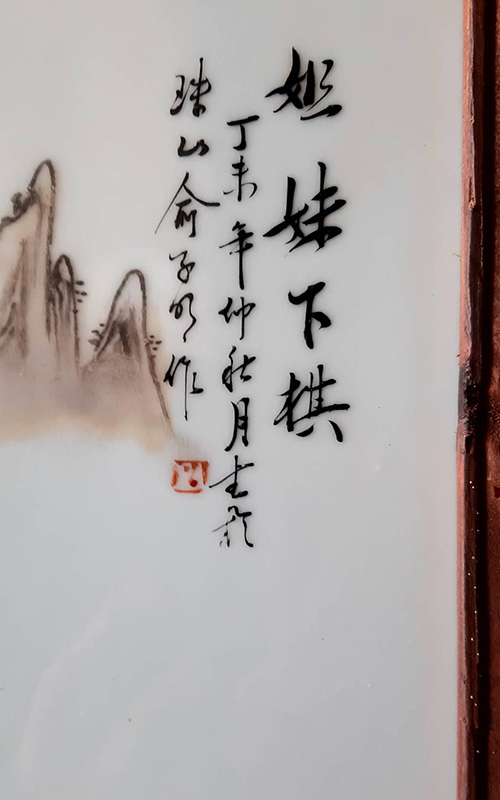 姐妹下棋
丁未年仲秋月书於
珠山俞子明作